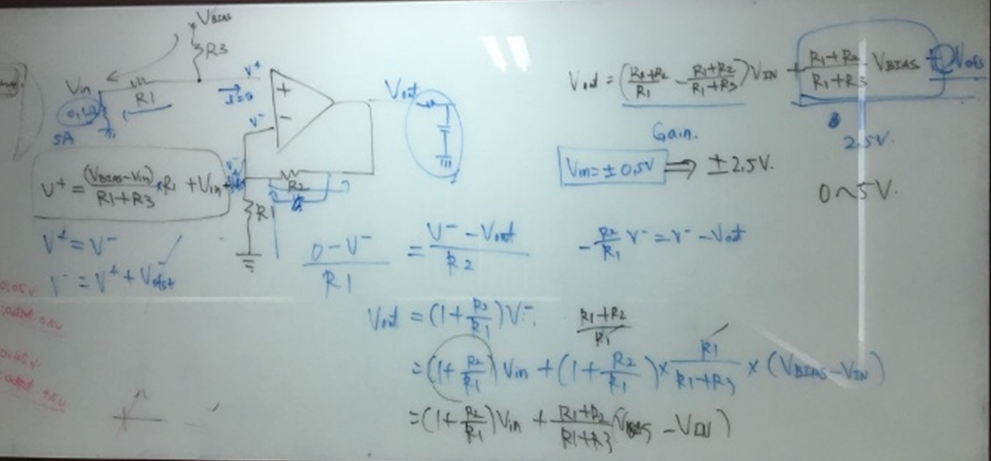 VBIAS
R3
Vin
R1
V+
I=0
V-
+
-
Vout
0.1Ω
5A
R2
R1
V+ = (VBIAS-Vin)/(R1+R3) × R1 + Vin
V+ = V-
V- = V+ + Vofst
(0-V-)/R1 = (V- - Vout)/R2
-R2/R1 V- = V- - Vout
Vout = (1+R2/R1)V-.
(R1+R2)/R1
= (1+R2/R1) Vin + (1+R2/R1) × R1/(R1+R3) × (VBIAS-VIN)
= (1+R2/R1)Vin + (R1+R2)/(R1+R3) (VBIAS - VIN)
Vout = ((R1+R2)/R1 - (R1+R2)/(R1+R3)) VIN + (R1+R2)/(R1+R3) · VBIAS Vofs
Gain.
2.5V
Vin=±0.5V ⇒ ±2.5V.
0~5V.